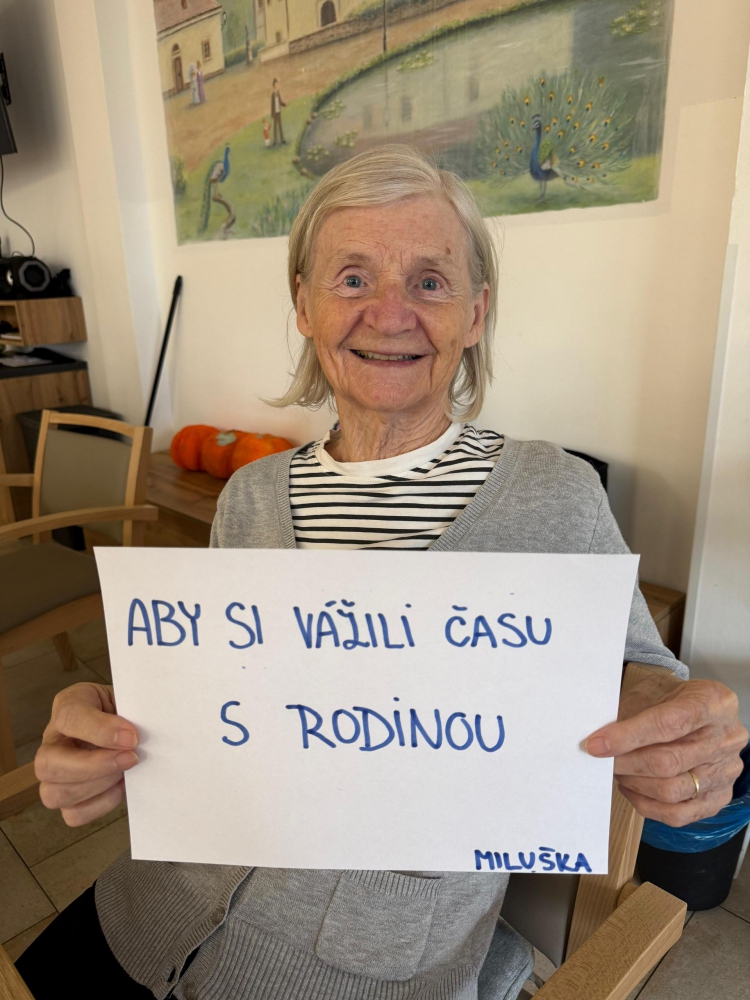 ABY SI VÁŽILI ČASU
S RODINOU
MILUŠKA